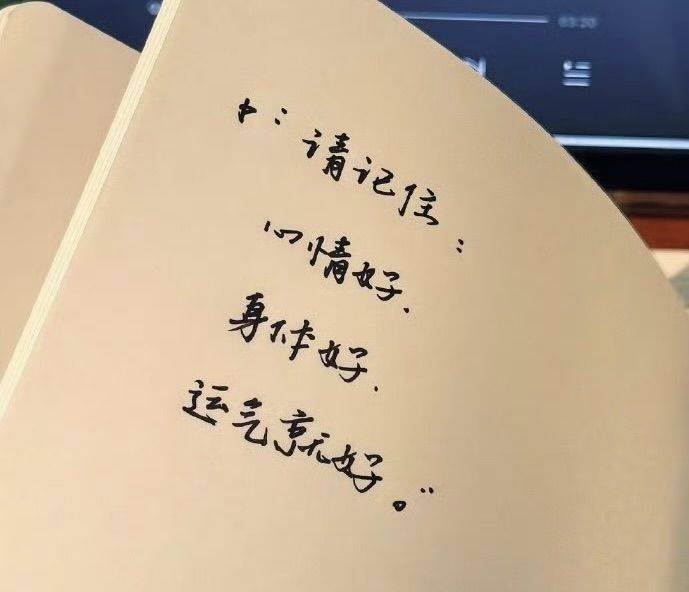 ：请记住：
心情好.
身体好.
运气就好。”
03:20